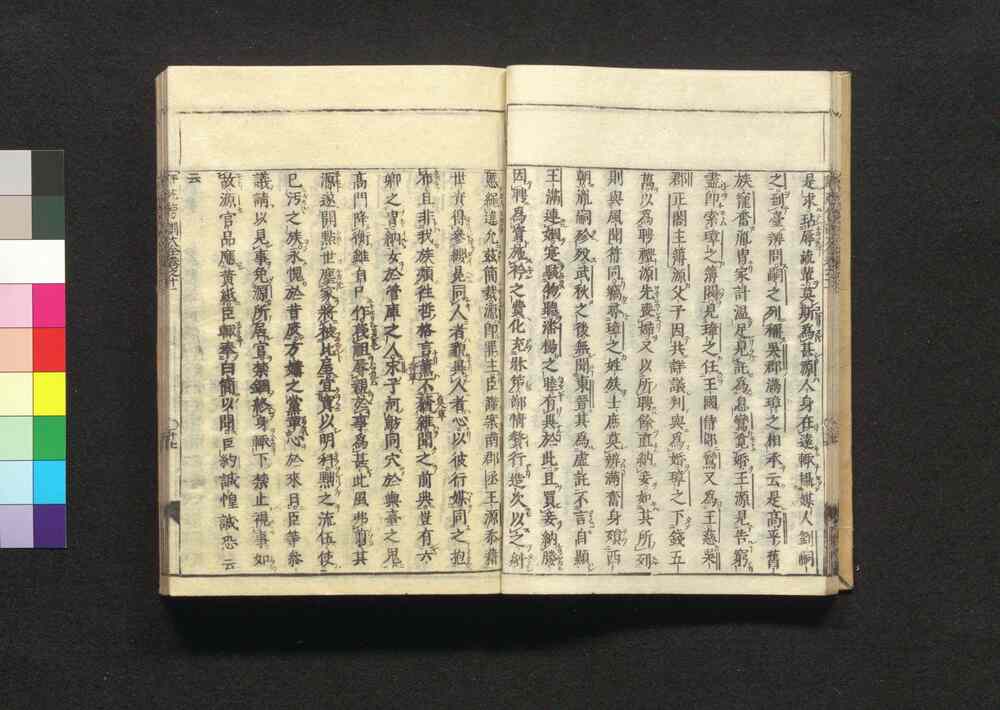 是求玷辱流輩莫斯為甚源人身在遠輒攝媒人劉嗣
之到臺辨問嗣之列稱吳郡滿璋之相承云是高平舊
族寵奮胤胄家計溫足見託為息鸞覓婚王源見告窮
盡即索璋之簿閥見璋之任王國侍郎鸞又為王慈吳
郡正閤主簿源父子因共詳議判與為婚璋之下錢五
萬以為聘禮源先喪婦又以所聘餘直納妾如其所列
則與風聞符同竊尋璋之姓族士庶莫辨滿奮身殞西
朝胤嗣殄没武秋之後無聞東晉其為虛託不言自顯
王滿連姻寔駭物聽潘楊之睦有異於此且買妾納媵
因聘為資施衿之費化充牀笫鄙情贅行造次以之糾
慝繩違允茲簡裁源即罪主臣謹案南郡丞王源忝藉
世資得參纓冕同人者貌異人者心以彼行媒同之抱
布且非我族類往哲格言薰不蕕雜聞之前典豈有六
卿之胄納女於管庫之人宋子河魴同穴於輿臺之鬼
高門降衡雖自己作蔑祖辱親於事為甚此風弗剪其
源遂開點世塵家將被比屋宜寘以明科黜之流伍使
已污之族永愧於昔辰方媾之黨革心於來日臣等參
議請以見事免源所居官禁錮終身輒下禁止視事如
故源官品應黃紙臣輒奉白簡以聞臣約誠惶誠恐云
云